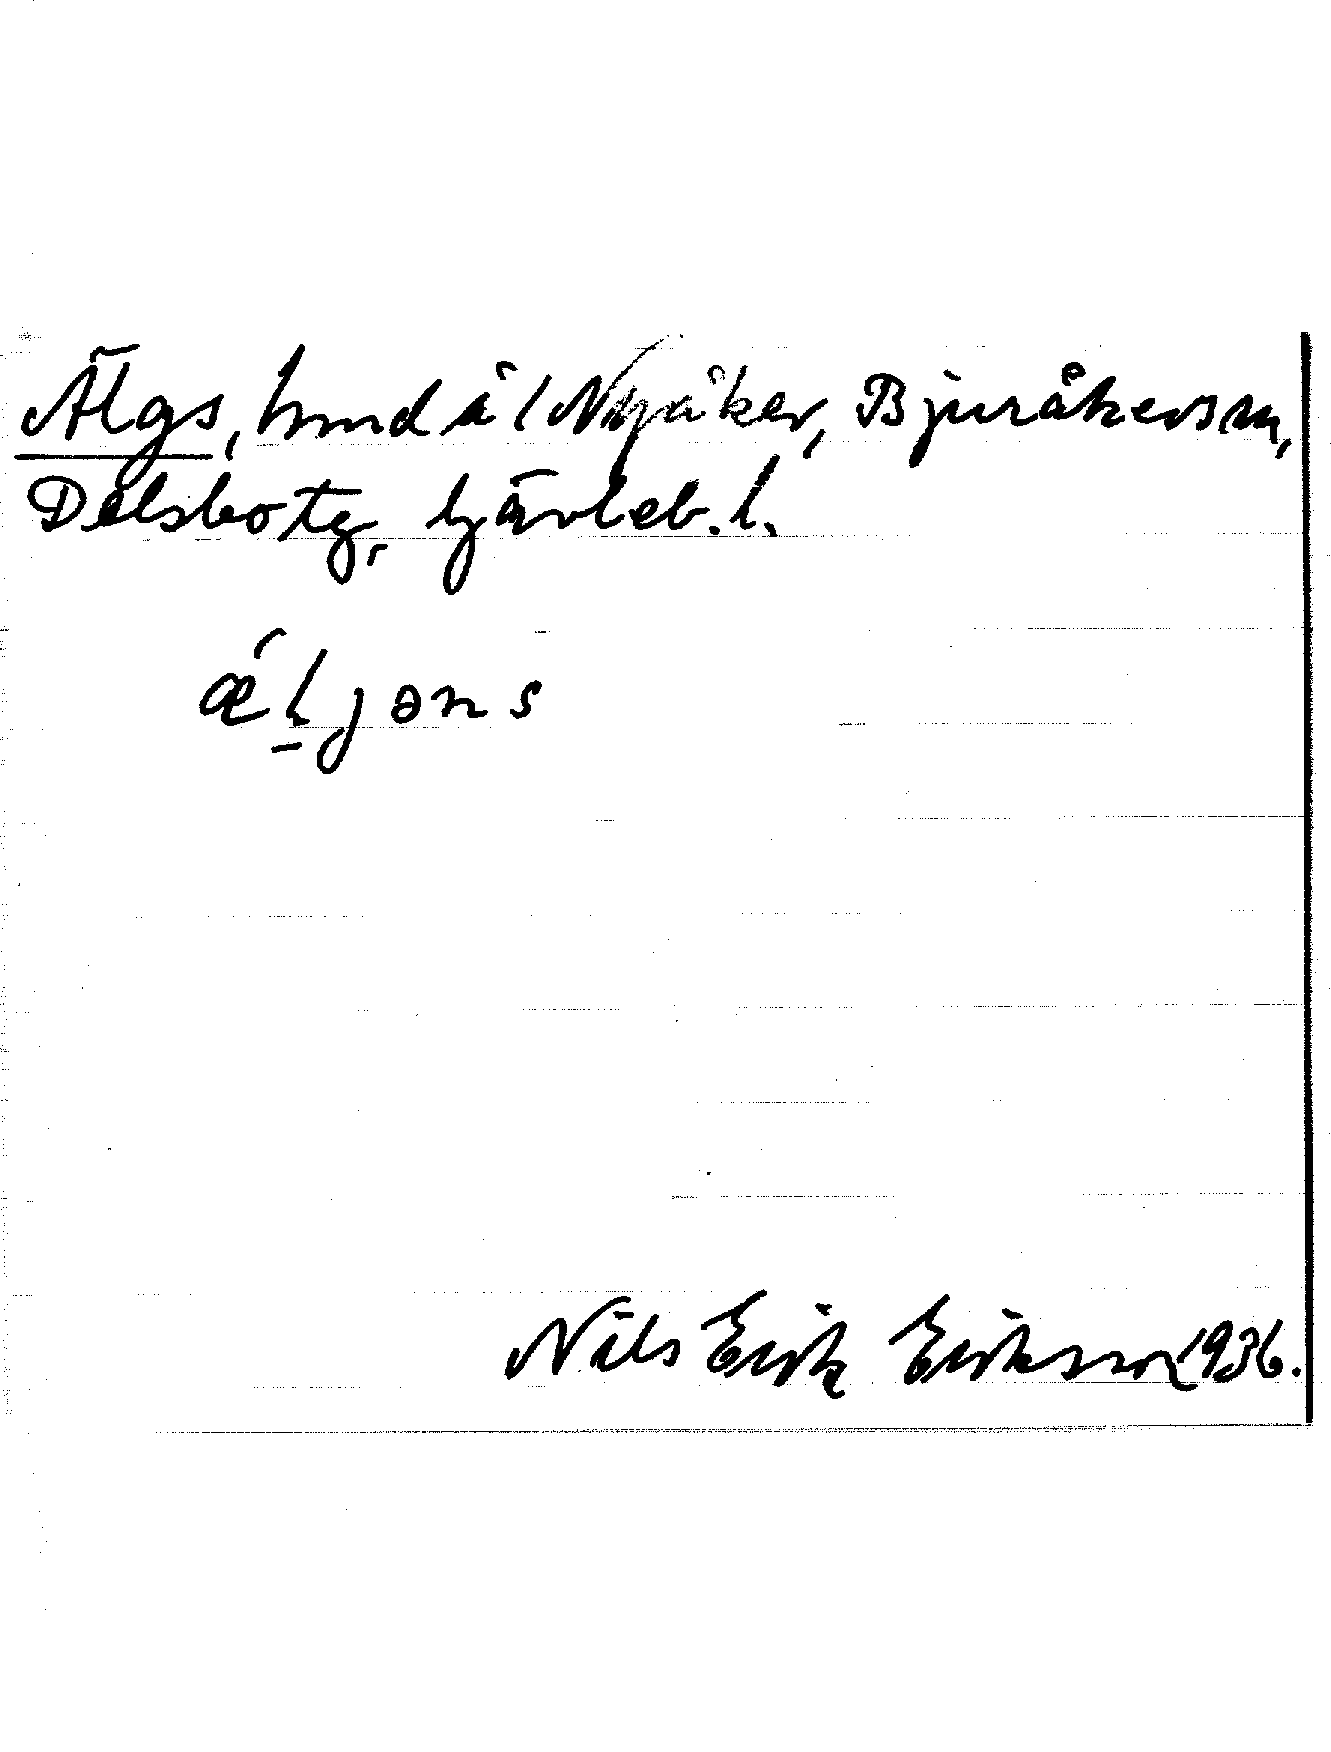 Älgs, hmd å 1 Nyåker, Bjuråkers sn,
Delsbo tg, Gävleb. l.
ǽl̠jəns
Nils Erik Eriksson 1936.